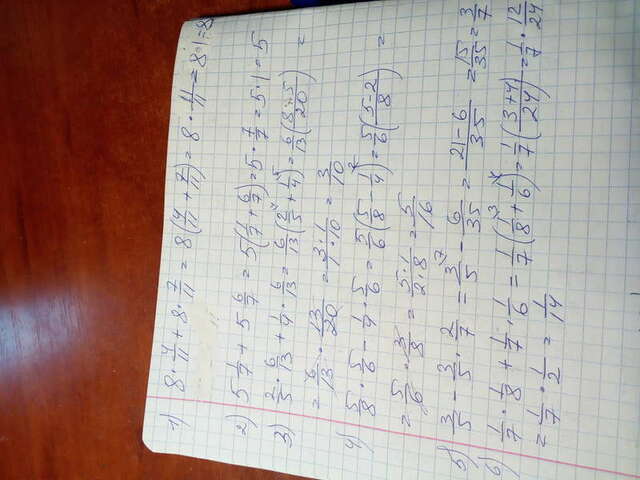 1) 8·4/11 + 8·7/11 = 8(4/11 + 7/11) = 8·11/11 = 8·1=8
2) 5 1/7 + 5 6/7 = 5(1/7 + 6/7) = 5·7/7 = 5·1=5
3) 2/5·6/13 + 1/4·6/13 = 6/13(2/5 + 1/4) = 6/13((8+5)/20) =
= 6/13·13/20 = (3·1)/(1·10) = 3/10
4) 5/8·5/6 - 1/4·5/6 = 5/6(5/8 - 1/4) = 5/6((5-2)/8) =
= 5/6·3/8 = (5·1)/(2·8) = 5/16
5) 3/5 - 3/5·2/7 = 3/5 - 6/35 = (21-6)/35 = 15/35 = 3/7
6) 1/7·1/8 + 1/7·1/6 = 1/7(1/8 + 1/6) = 1/7((3+4)/24) = 1/7·12/24
= 1/7·1/2 = 1/14